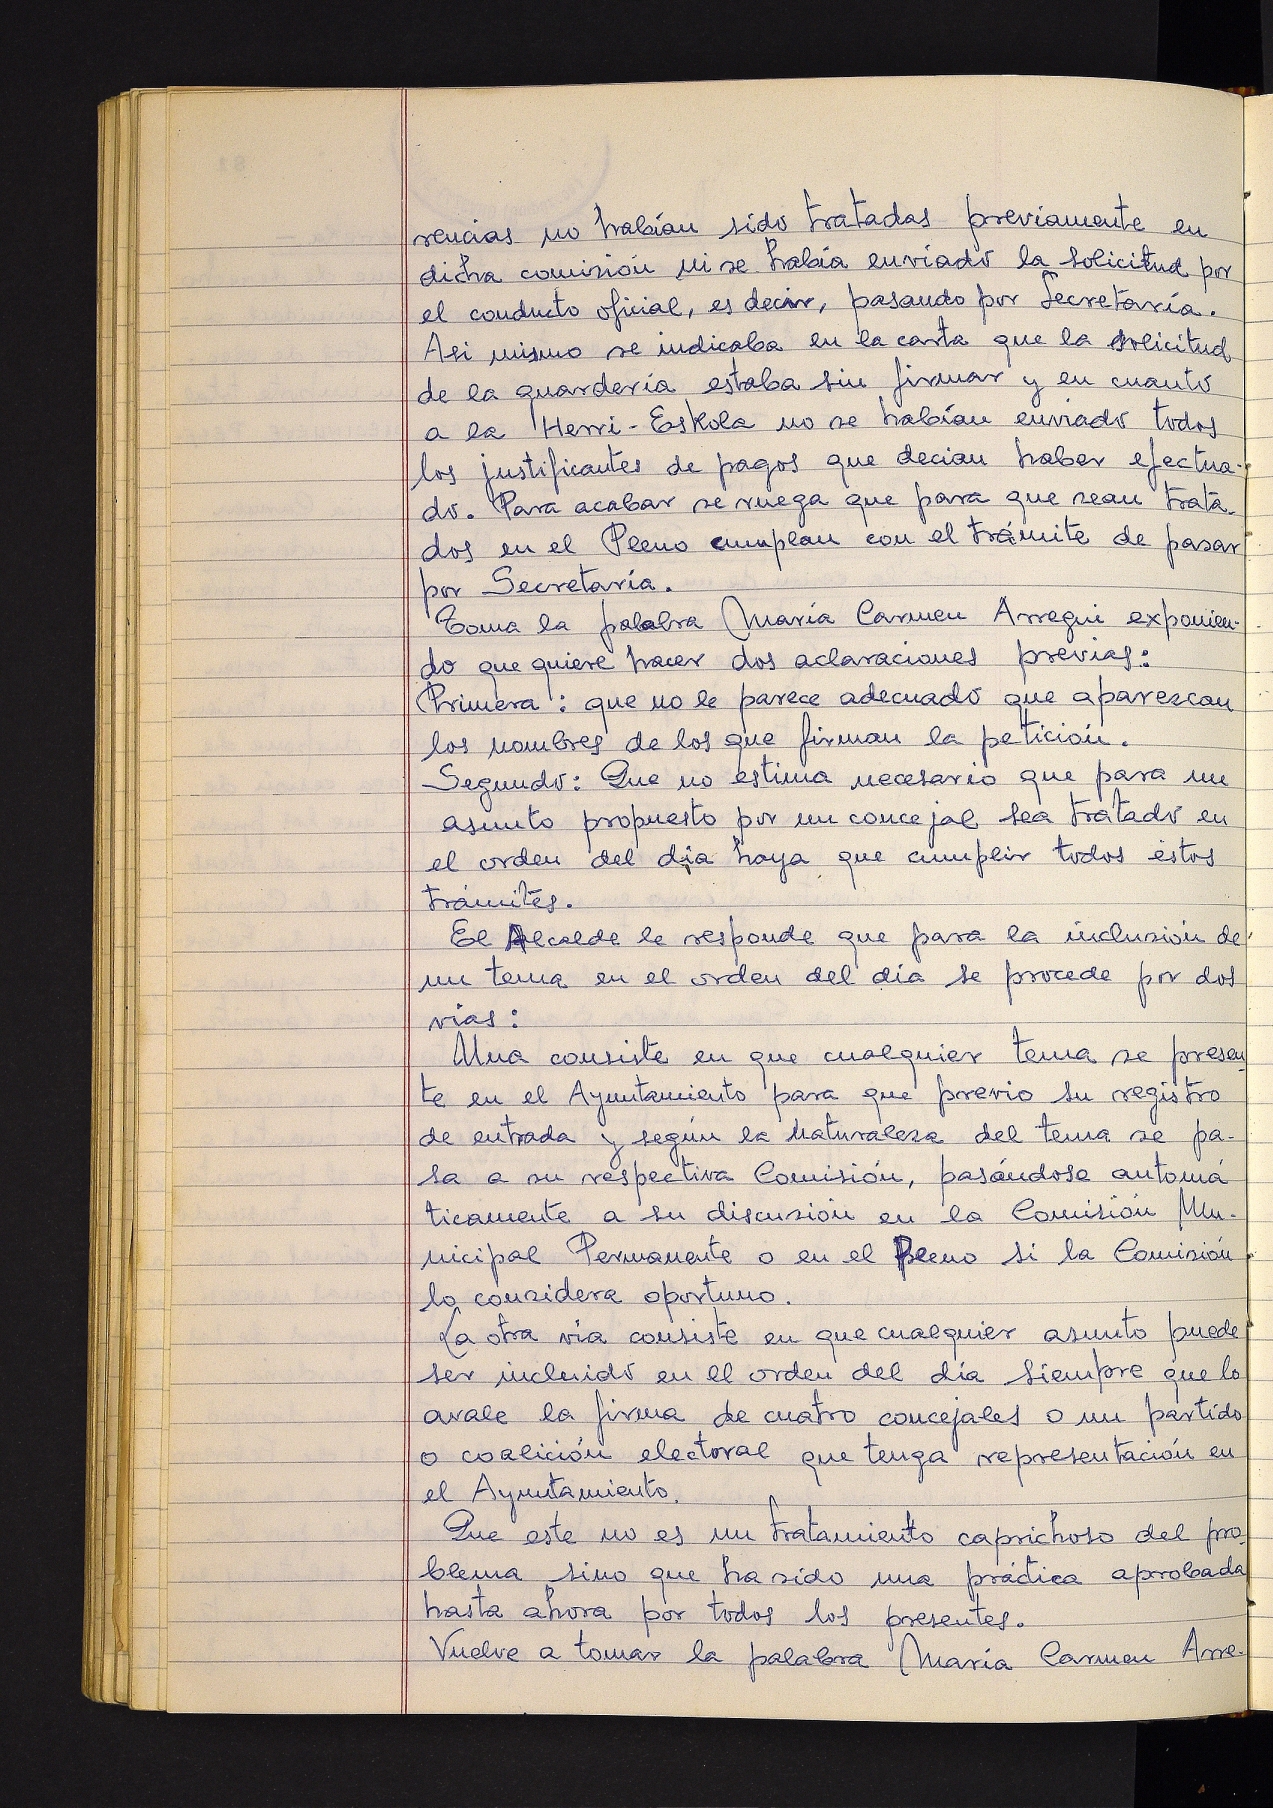 rencias no habían sido tratadas previamente en
dicha comisión ni se había enviado la solicitud por
el conducto oficial, es decir, pasando por Secretaría.
Asi mismo se indicaba en la carta que la solicitud
de la guardería estaba sin firmar y en cuanto
a la Herri-Eskola no se habían enviado todos
los justificantes de pagos que decian haber efectua-
do. Para acabar se ruega que para que sean trata-
dos en el Pleno cumplan con el trámite de pasar
por Secretaría.
Toma la palabra María Carmen Arregui exponien-
do que quiere hacer dos aclaraciones previas:
Primera: que no le parece adecuado que aparezcan
los nombres de los que firman la petición.
Segundo: Que no estima necesario que para un
asunto propuesto por un concejal sea tratado en
el orden del día haya que cumplir todos éstos
trámites.
El Alcalde le responde que para la inclusión de
un tema en el orden del día se procede por dos
vías:
Una consiste en que cualquier tema se presen-
te en el Ayuntamiento para que previo su registro
de entrada y según la Naturaleza del tema se pa-
sa a su respectiva Comisión, pasándose automá
ticamente a su discusión en la Comisión Mu-
nicipal Permanente o en el Pleno si la Comisión
lo considera oportuno.
La otra vía consiste en que cualquier asunto puede
ser incluido en el orden del día siempre que lo
avale la firma de cuatro concejales o un partido
o coalición electoral que tenga representación en
el Ayuntamiento.
Que este no es un tratamiento caprichoso del pro-
blema sino que ha sido una práctica aprobada
hasta ahora por todos los presentes.
Vuelve a tomar la palabra María Carmen Arre-